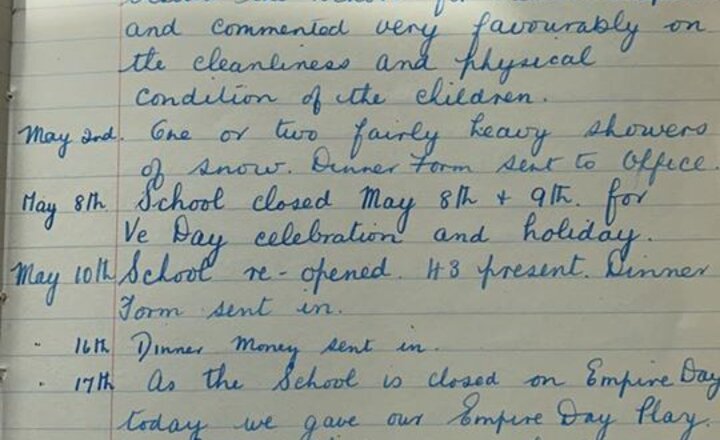 and commented very favourably on
the cleanliness and physical
condition of the children.
May 2nd. One or two fairly heavy showers
of snow. Dinner Form sent to Office.
May 8th School closed May 8th + 9th. for
Ve Day celebration and holiday.
May 10th School re-opened. 43 present. Dinner
Form sent in.
" 16th Dinner Money sent in.
" 17th As the School is closed on Empire Day
today we gave our Empire Day Play.